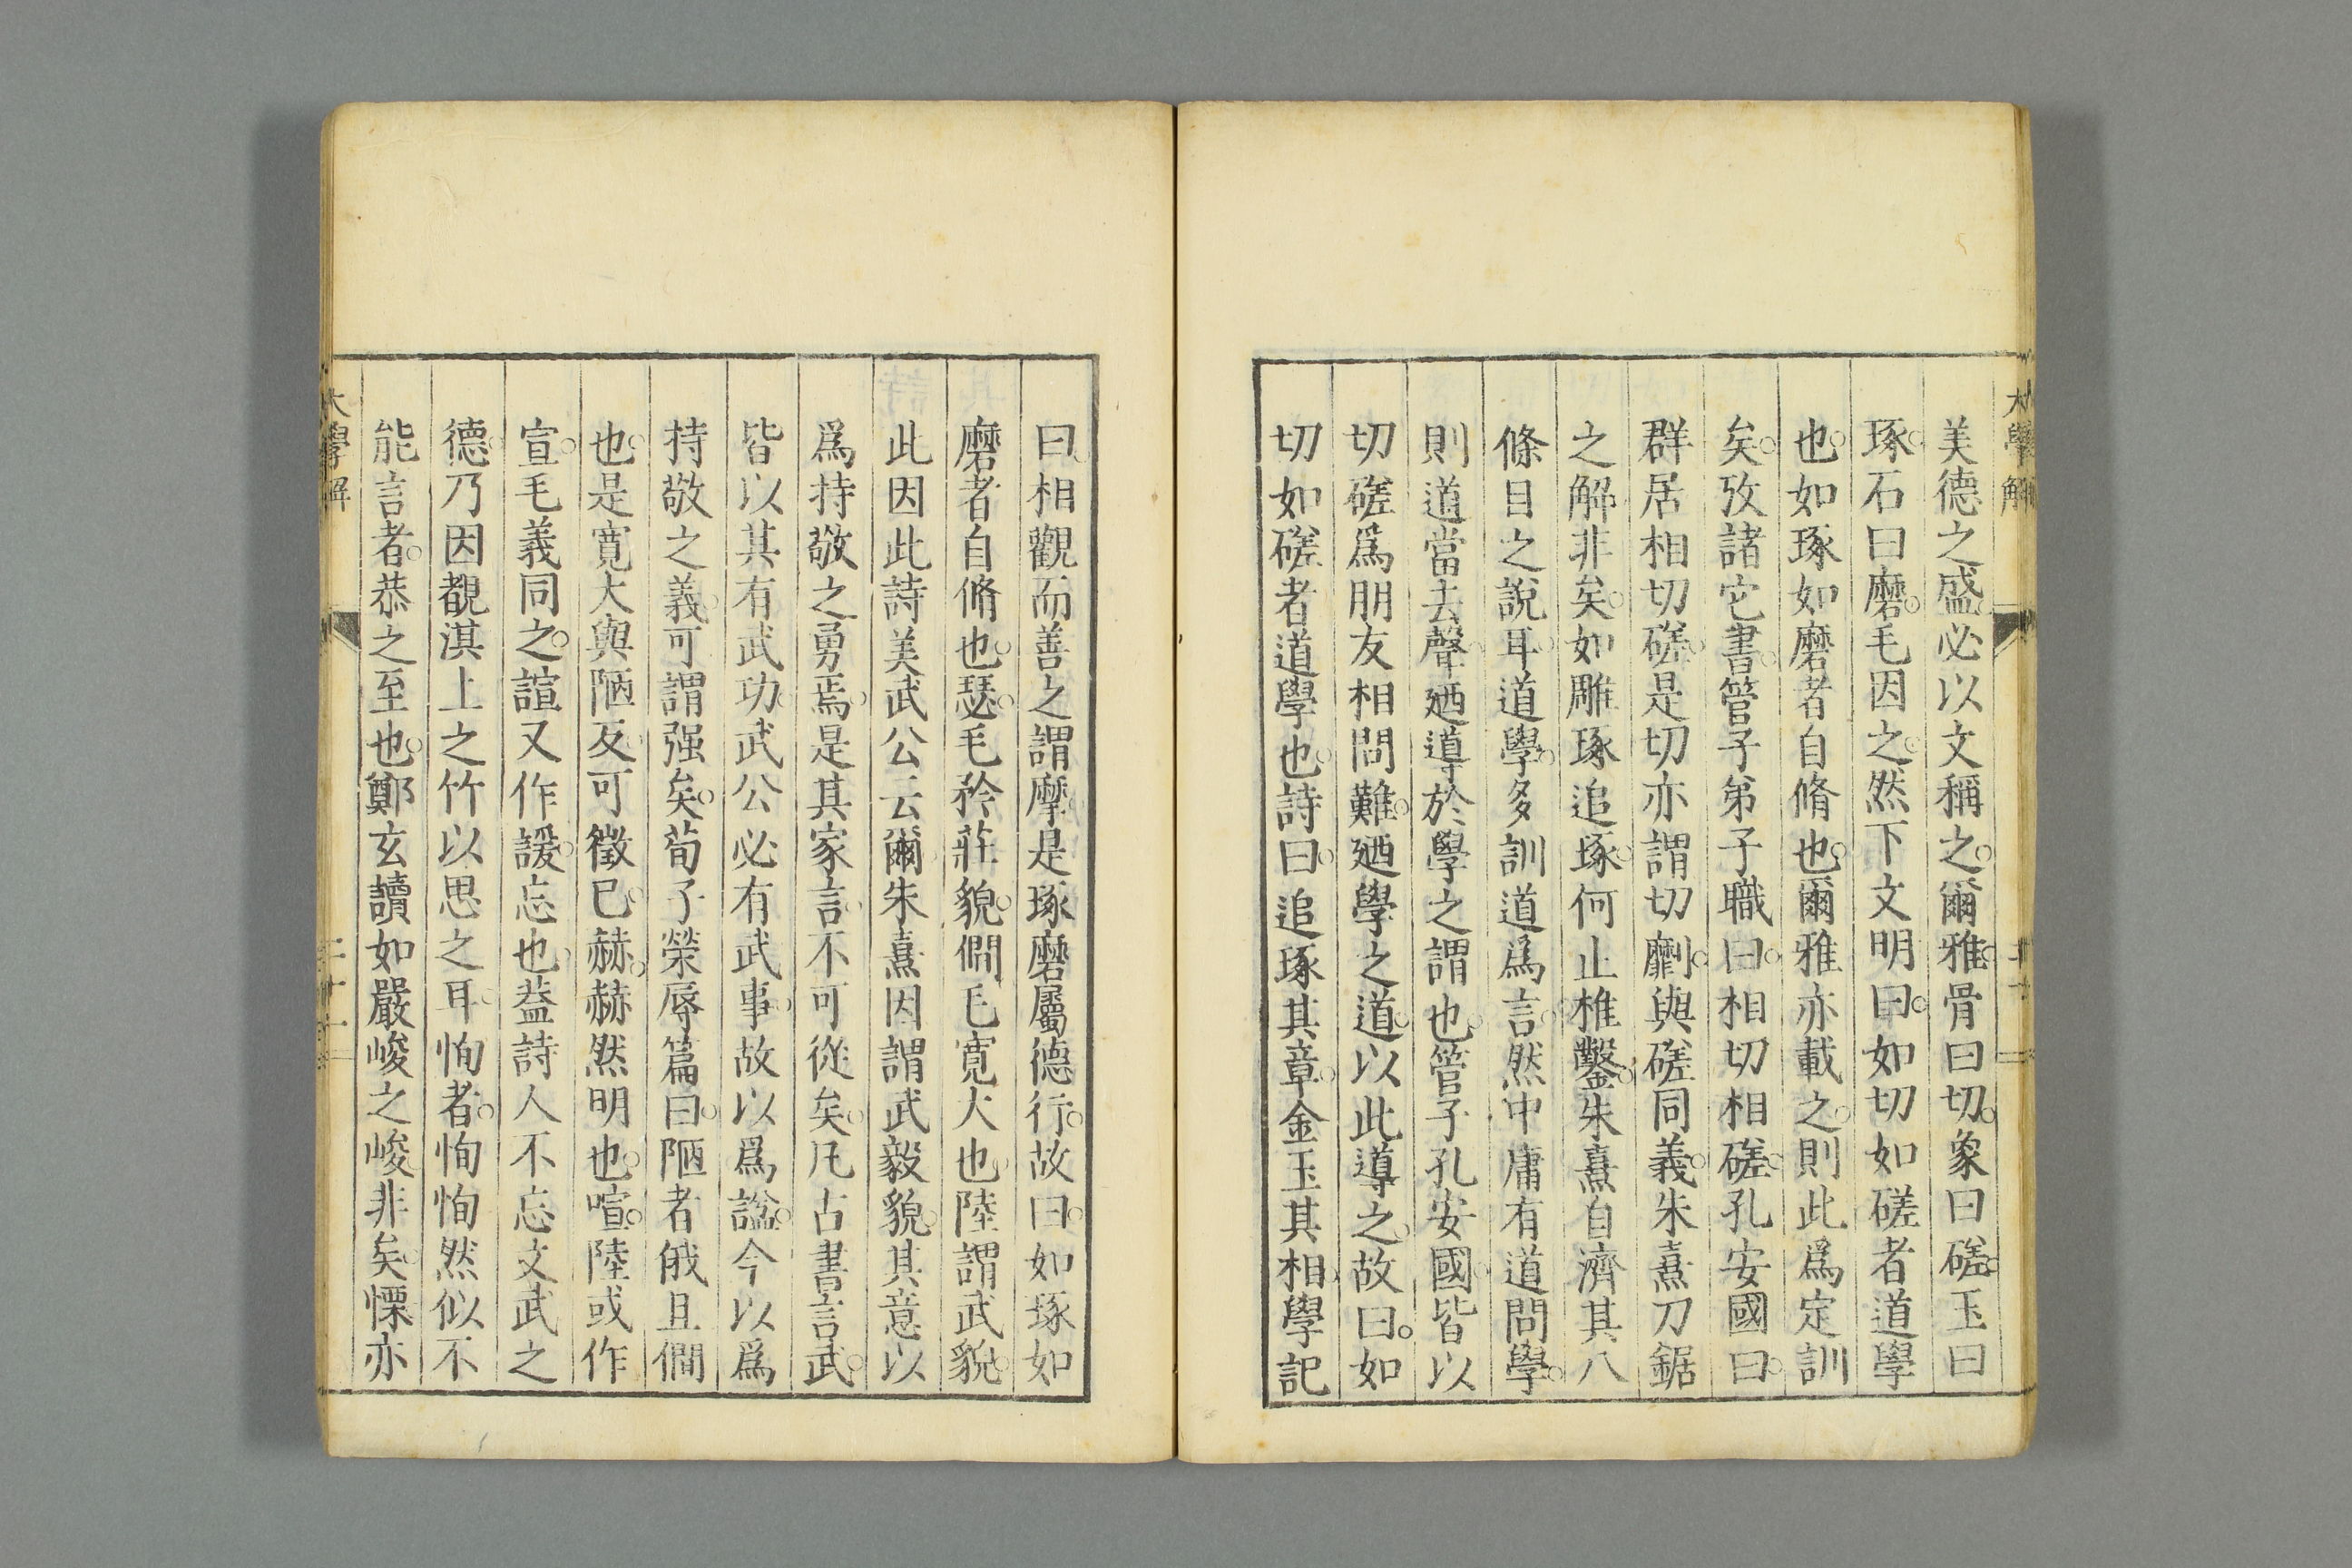 大學解
美德之盛必以文稱之。爾雅。骨曰切。象曰磋。玉曰
琢。石曰磨。毛因之。然下文明曰。如切如磋者道學
也。如琢如磨者自脩也。爾雅亦載之。則此爲定訓
矣。攷諸它書。管子弟子職曰。相切相磋。孔安國曰。
群居相切磋。是切亦謂切劘。與磋同義。朱熹刀鋸
之解非矣。如雕琢追琢。何止椎鑿。朱熹自濟其八
條目之說耳。道學。多訓道爲言。然中庸有道問學。
則道當去聲。廼導於學之謂也。管子孔安國。皆以
切磋爲朋友相問難。廼學之道。以此導之。故曰。如
切如磋者道學也。詩曰。追琢其章。金玉其相。學記
曰。相觀而善之謂摩。是琢磨屬德行。故曰。如琢如
磨者自脩也。瑟。毛矜莊貌。僩。毛寬大也。陸謂武貌。
此因此詩美武公云爾。朱熹因謂武毅貌。其意以
爲持敬之勇焉。是其家言。不可從矣。凡古書言武。
皆以其有武功。武公必有武事。故以爲諡。今以爲
持敬之義。可謂强矣。荀子榮辱篇曰。陋者俄且僩
也。是寬大與陋反。可徵已。赫。赫然明也。喧。陸或作
宣。毛義同之。諠又作諼。忘也。葢詩人不忘文武之
德。乃因覩淇上之竹以思之耳。恂者。恂恂然似不
能言者。恭之至也。鄭玄讀如嚴峻之峻非矣。慄亦
大學解
二十一